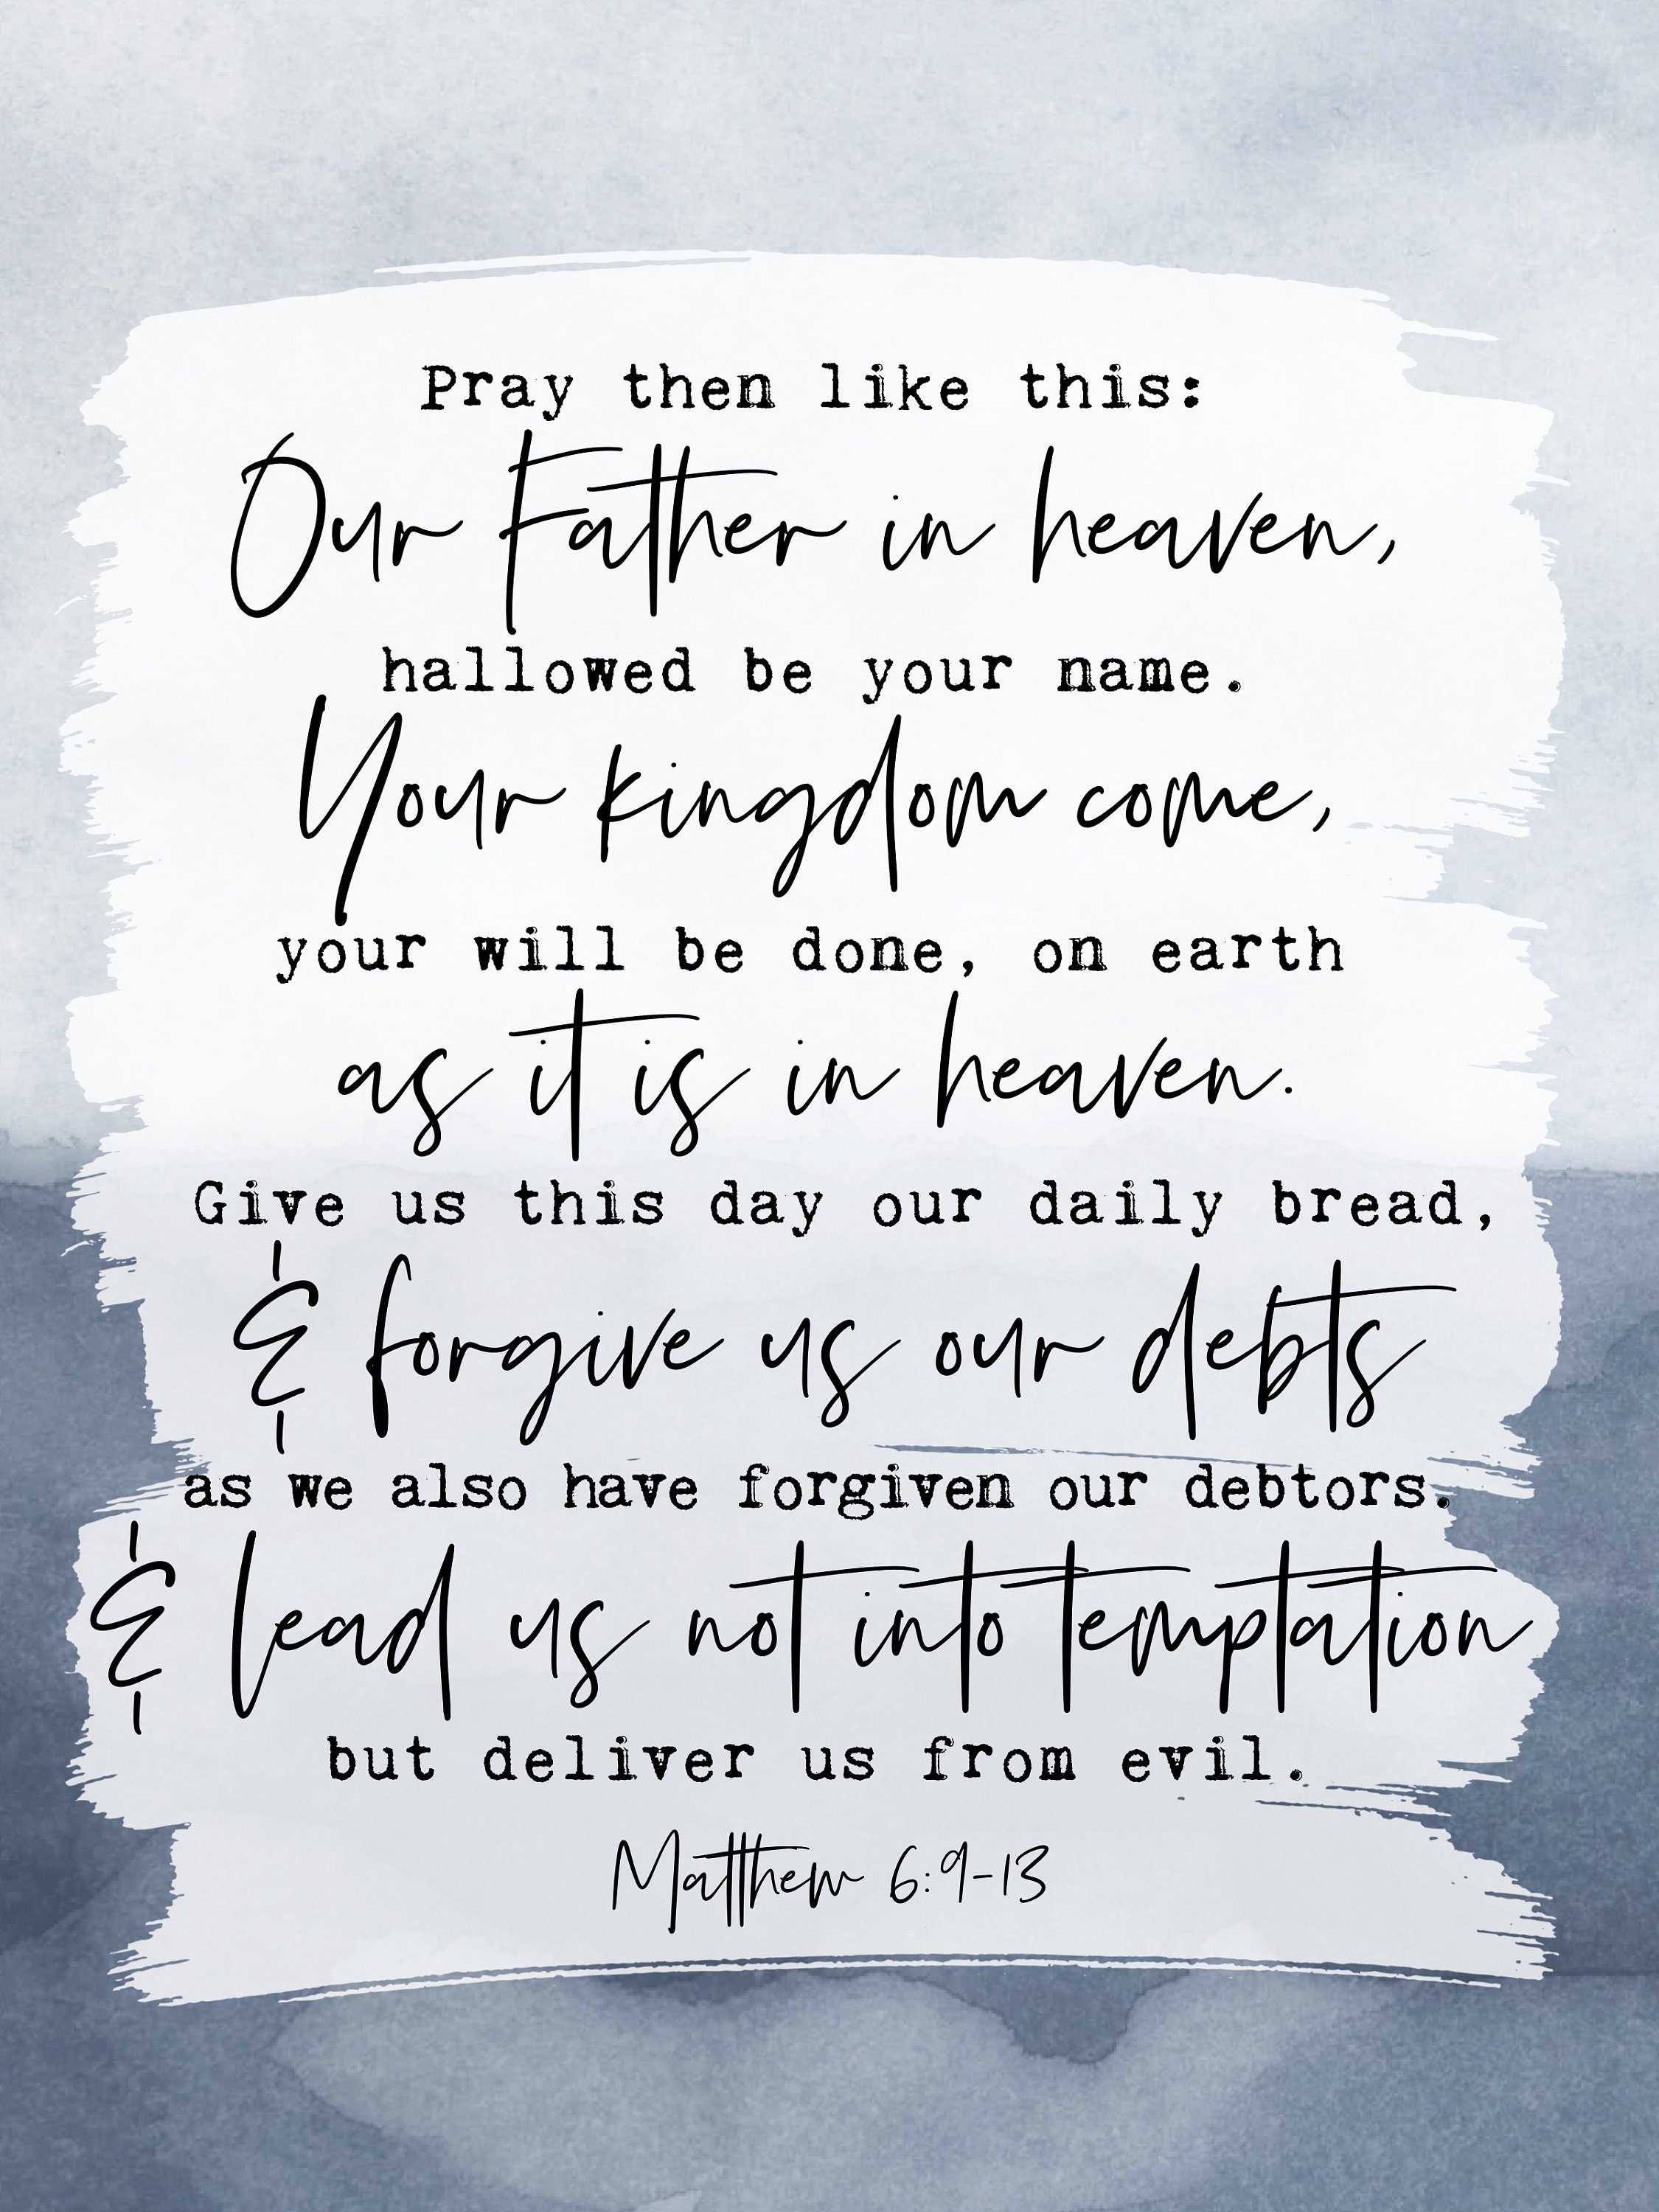 Pray then like this:
Our Father in heaven,
hallowed be your name.
Your kingdom come,
your will be done, on earth
as it is in heaven.
Give us this day our daily bread,
& forgive us our debts
as we also have forgiven our debtors.
& lead us not into temptation
but deliver us from evil.
Matthew 6:9-13